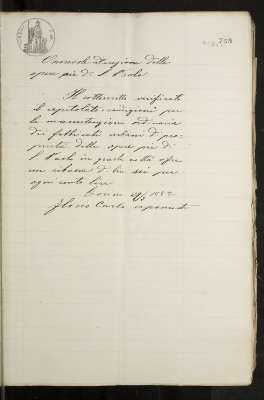 739
Onorevole Direzione delle
opere pie di S. Paolo
Il sottoscritto verificato
il capitolato e condizioni per
la manutenzione ordinaria
dei fabbricati urbani di pro-
prietà delle opere pie di
S. Paolo in questa città offre
un ribasso di lire sei per
ogni cento lire
Torino 1882
Florio Carlo